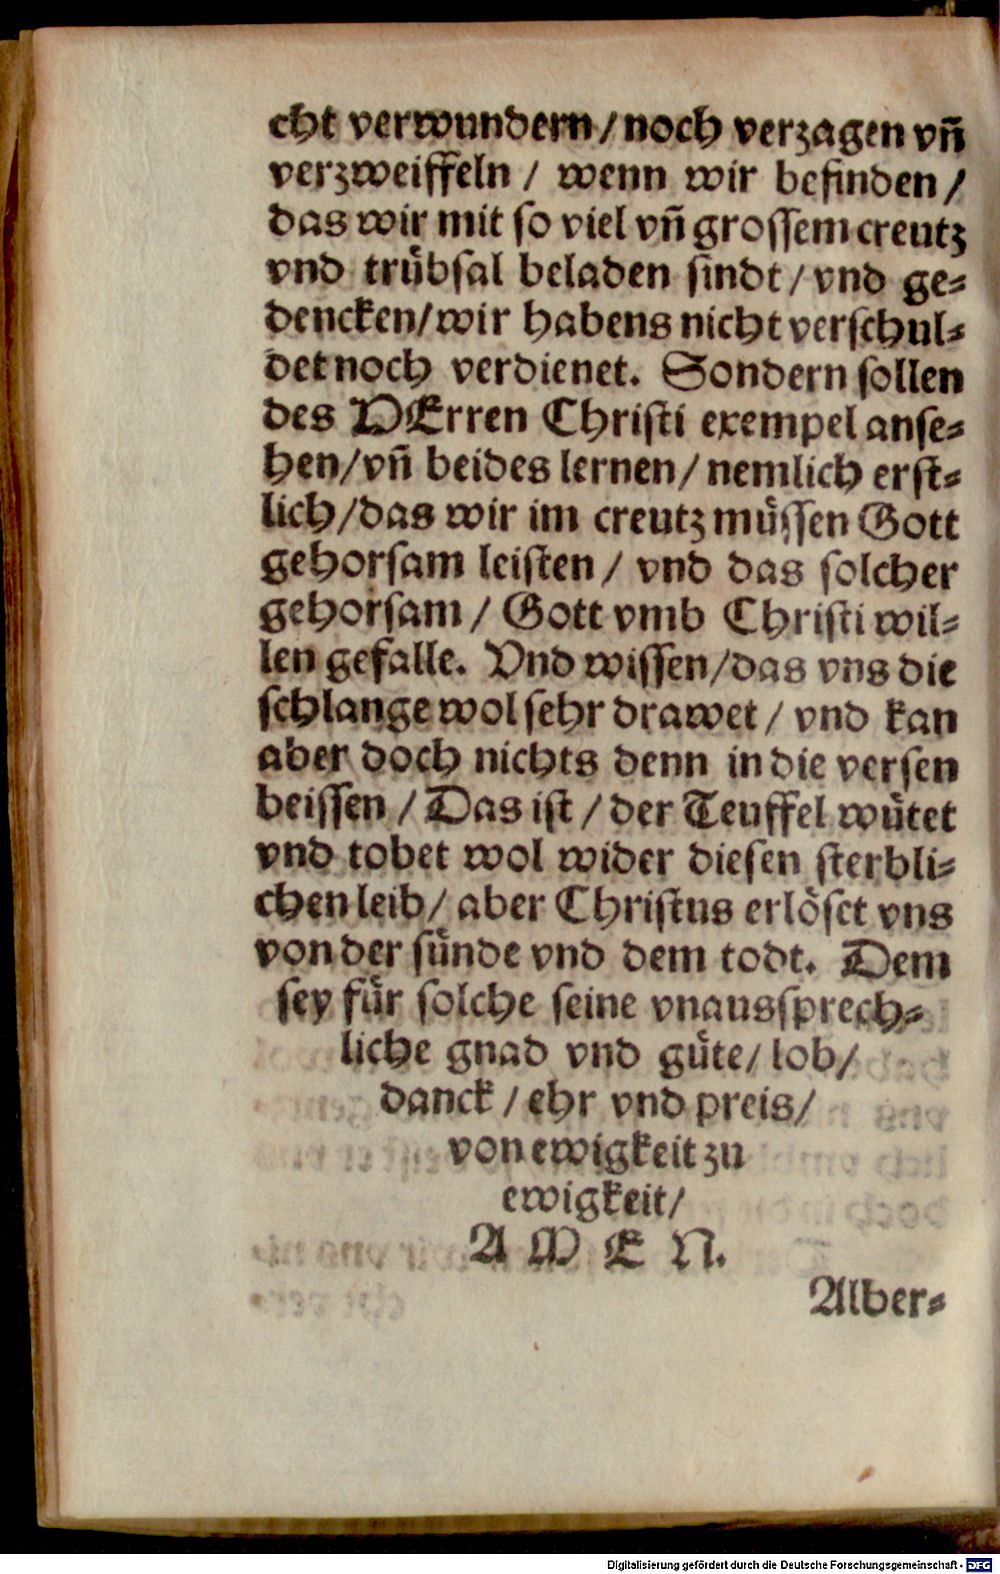 cht verwundern / noch verzagen vñ
verzweiffeln / wenn wir befinden /
das wir mit so viel vñ grossem creutz
vnd trübsal beladen sindt / vnd ge-
dencken / wir habens nicht verschul-
det noch verdienet. Sondern sollen
des HErren Christi exempel anse-
hen / vñ beides lernen / nemlich erst-
lich / das wir im creutz müssen Gott
gehorsam leisten / vnd das solcher
gehorsam / Gott vmb Christi wil-
len gefalle. Vnd wissen / das vns die
schlange wol sehr drawet / vnd kan
aber doch nichts denn in die versen
beissen / Das ist / der Teuffel wütet
vnd tobet wol wider diesen sterbli-
chen leib / aber Christus erlöset vns
von der sünde vnd dem todt. Dem
sey für solche seine vnaussprech-
liche gnad vnd güte / lob /
danck / ehr vnd preis /
von ewigkeit zu
ewigkeit /
A M E N.
Alber-
Digitalisierung gefördert durch die Deutsche Forschungsgemeinschaft - DFG